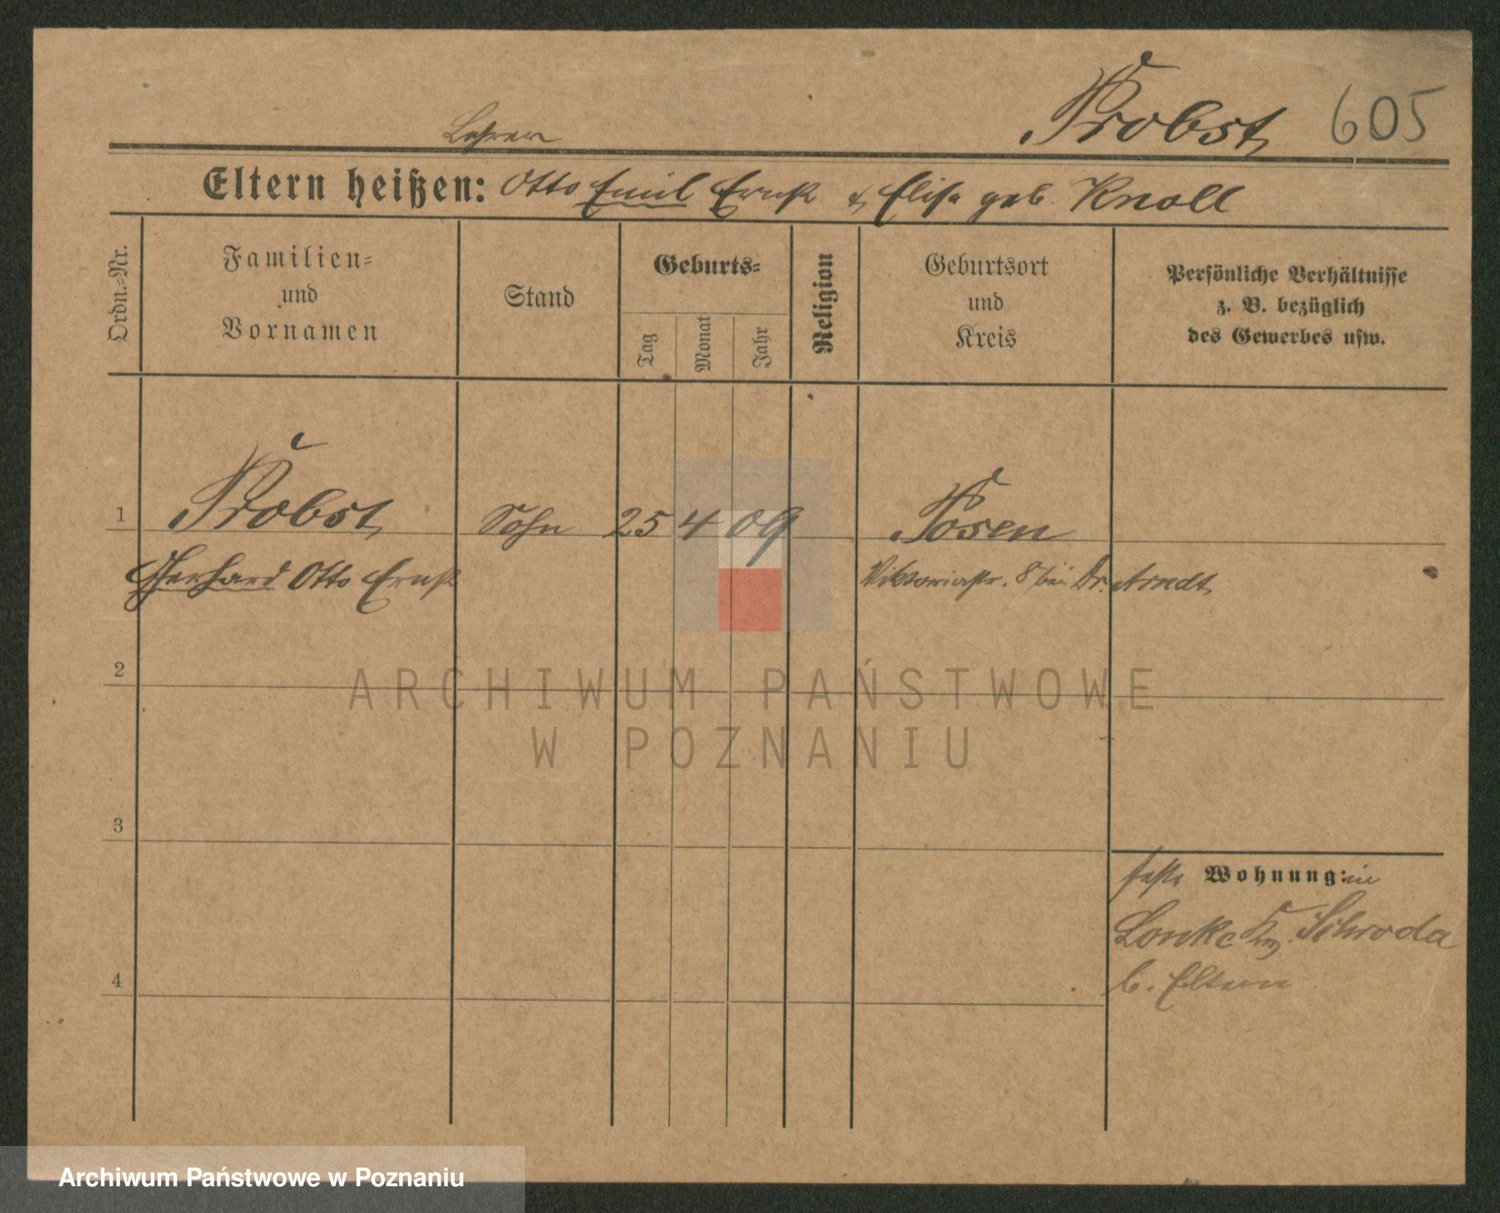 Probst 605
Lehrer
Eltern heißen: Otto Emil Ernst & Elise geb. Knoll
Ordn.-Nr.
Familien-
und
Vornamen
Stand
Geburts-
Tag
Monat
Jahr
Religion
Geburtsort
und
Kreis
Persönliche Verhältnisse
z. B. bezüglich
des Gewerbes usw.
1 Probst Sohn 25 4 09 Posen
Gerhard Otto Ernst Viktoriastr. 8 bei Dr. Arndt
2
ARCHIWUM PAŃSTWOWE
W POZNANIU
3
feste Wohnung: in
Schroda
4
b. Eltern
Archiwum Państwowe w Poznaniu